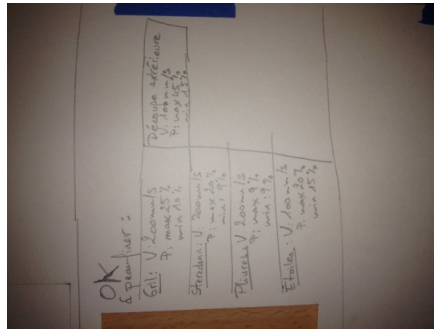 OK
à peaufiner :
Gril : V : 200 mm/s
P : max 25 %
min 10 %
V : 200 mm/s
P : max 20 %
min : 9 %
V 200 mm/s
P : max 9 %
min : 9 %
Étoiles : V 100 mm/s
P : max 20 %
min 15 %
Découpe extérieure
V : 100 mm/s
P : max 45 %
min 15 %